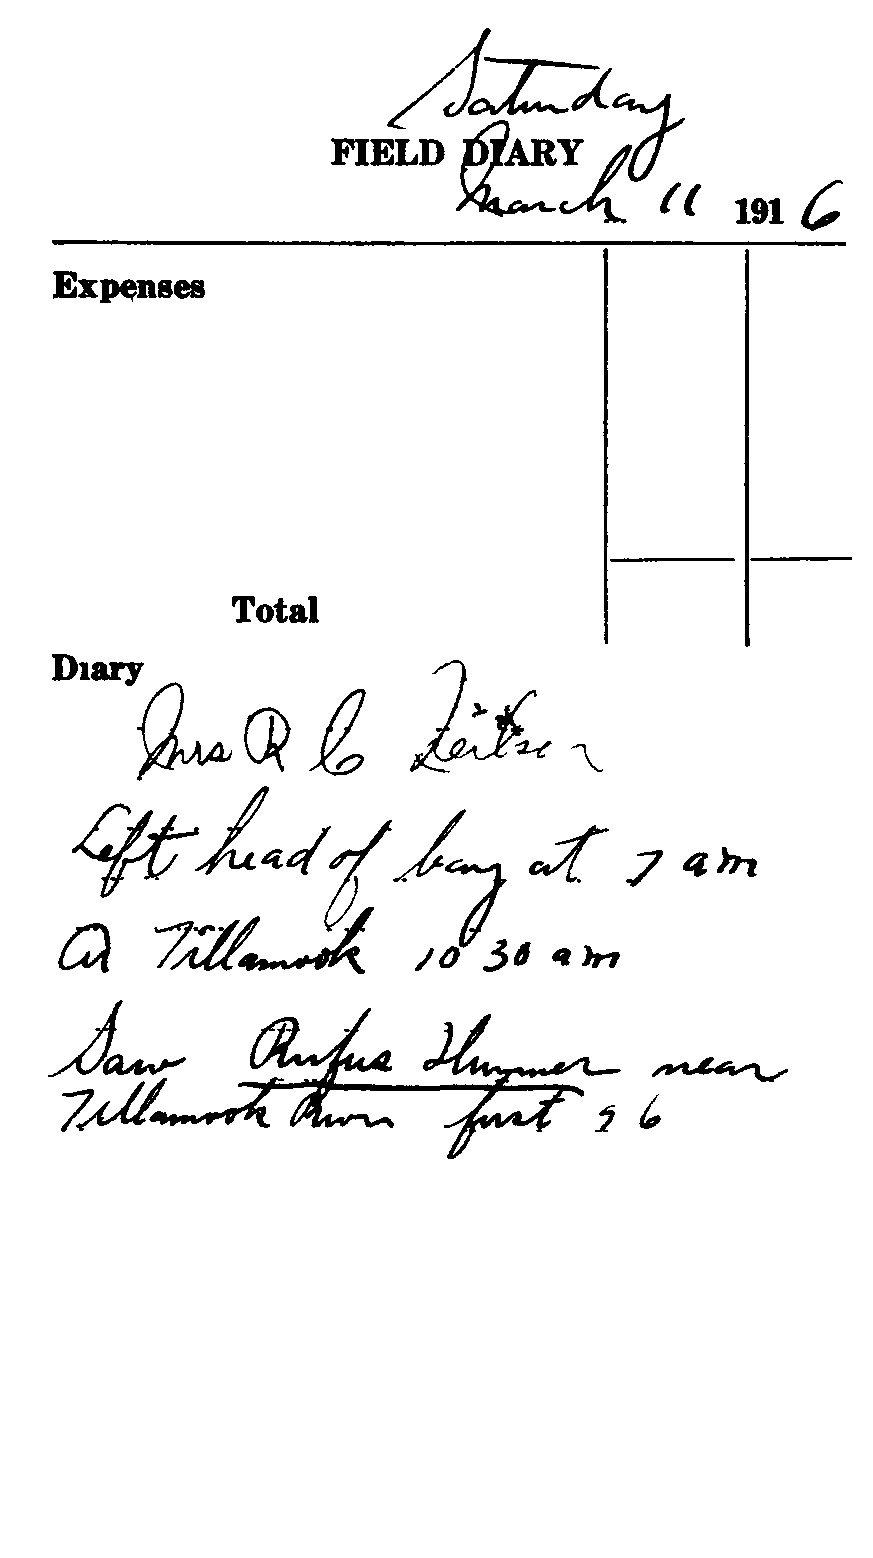 Saturday
FIELD DIARY
March 11 1916
Expenses
Total
Diary
Mrs R C
Left head of bay at 7 am
Ar Tillamook 10 30 am
Saw Rufus Hummer near
Tillamook River first 96